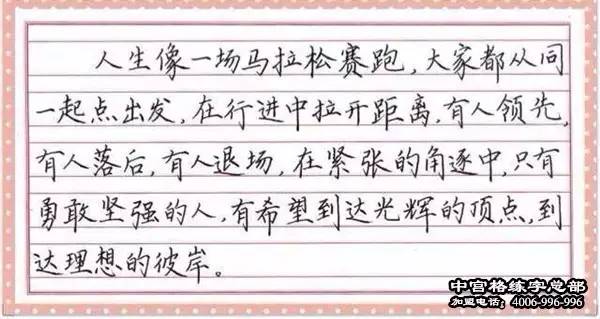 人生像一场马拉松赛跑，大家都从同
一起点出发，在行进中拉开距离，有人领先，
有人落后，有人退场，在紧张的角逐中，只有
勇敢坚强的人，有希望到达光辉的顶点，到
达理想的彼岸。
中宫格练字总部
加盟电话：4006-996-996